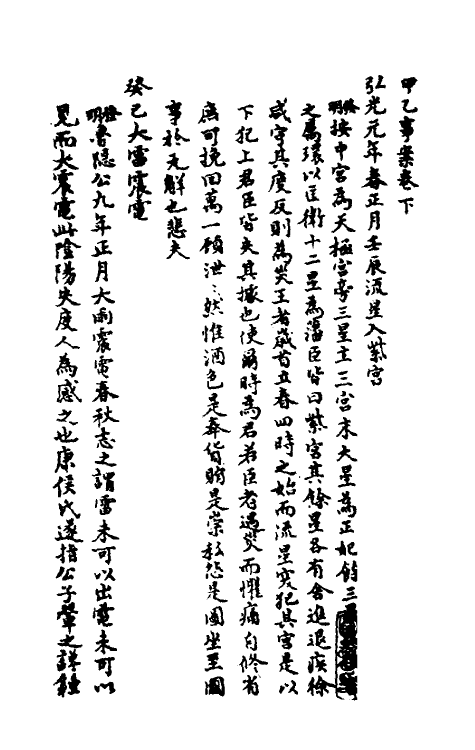 甲乙事案卷下
弘光元年春正月壬辰流星入紫宮
發明按中宮為天極宮旁三星主三宮末大星為正妃餘三星
之屬環以匡衛十二星為藩臣皆曰紫宮其餘星各有舍進退疾徐
咸守其度反則為災王者歲首立春四時之始而流星突犯其宮是以
下犯上君臣皆失其據也使爾時為君若臣者遇災而懼痛自修省
庶可挽回萬一顧泄泄然惟酒色是奉貨賄是崇私怨是圖坐至國
事於无解也悲夫
癸巳大雷震電
發明魯隱公九年正月大雨震電春秋志之謂雷未可以出電未可以
見而大震電此陰陽失度人為感之也康侯氏遂指公子翬之讒鍾